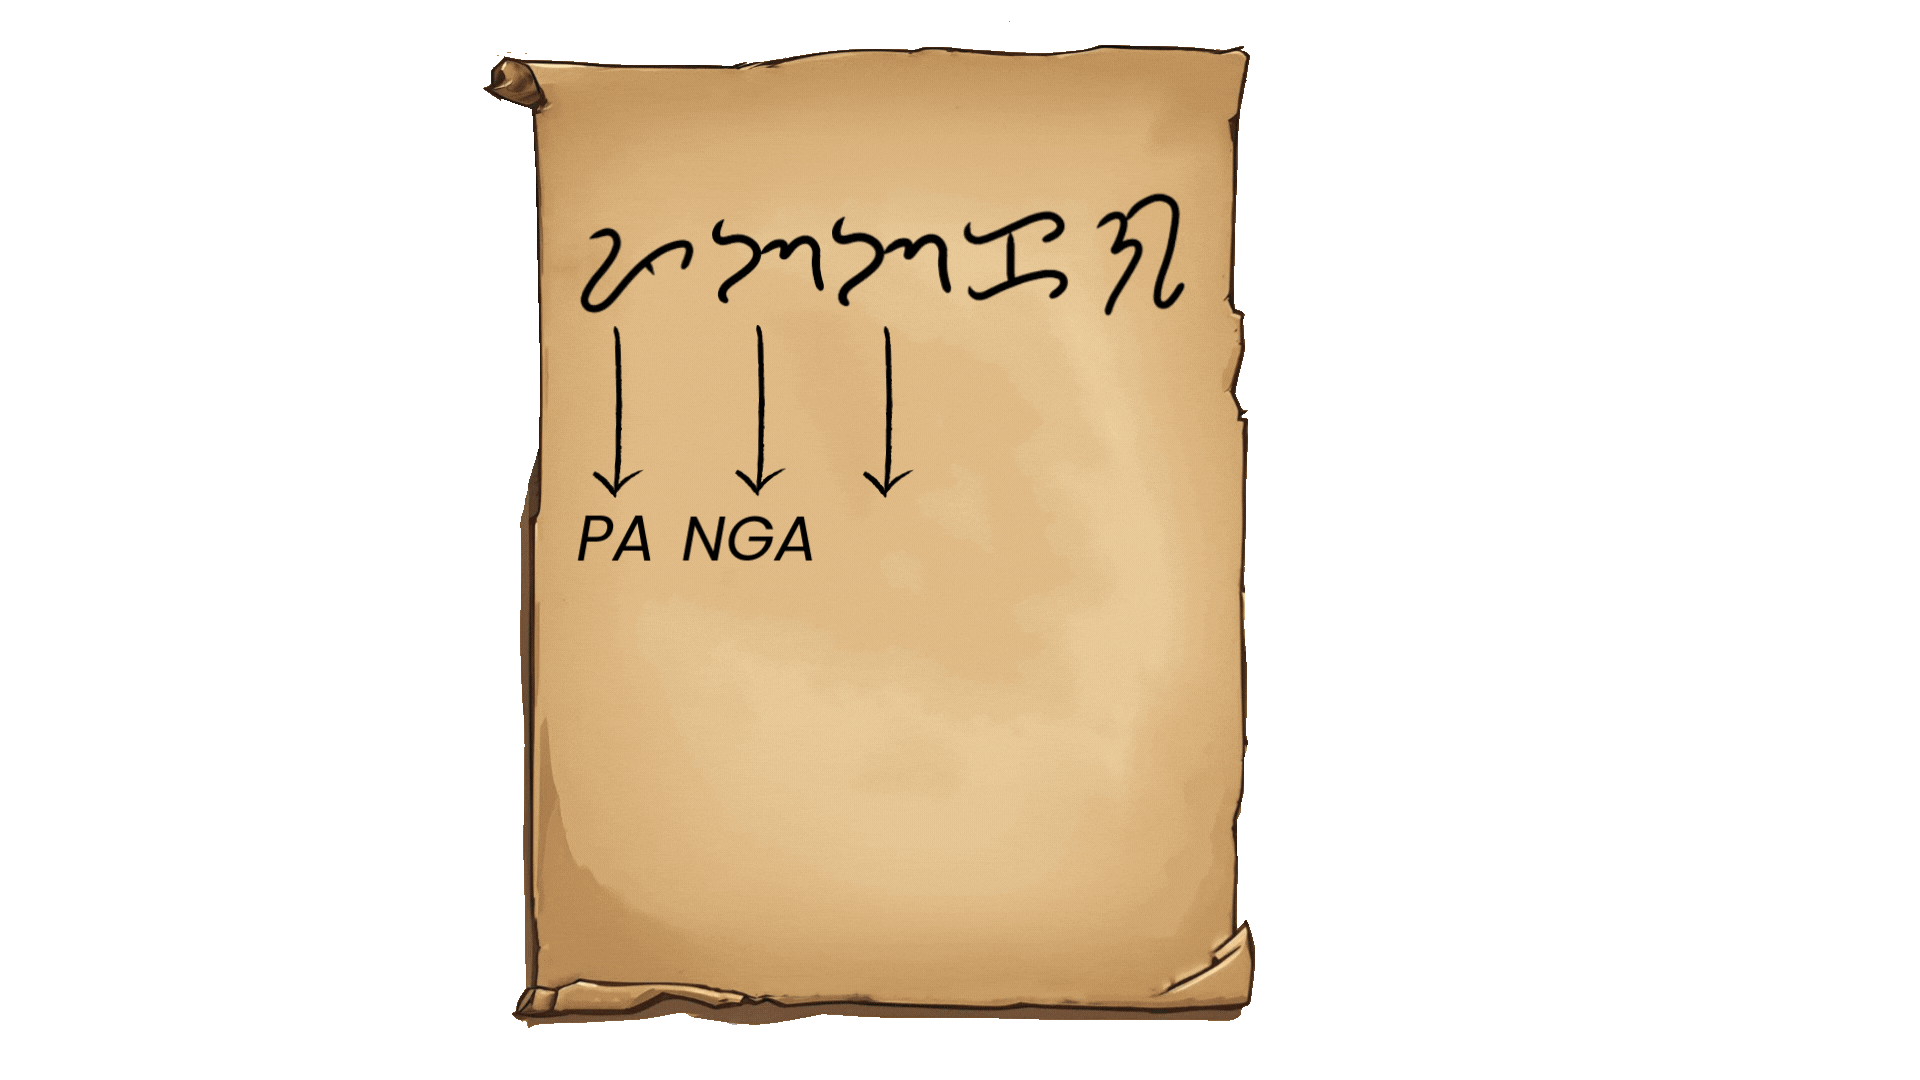 ᜉᜅᜅᜃᜐ
PA NGA